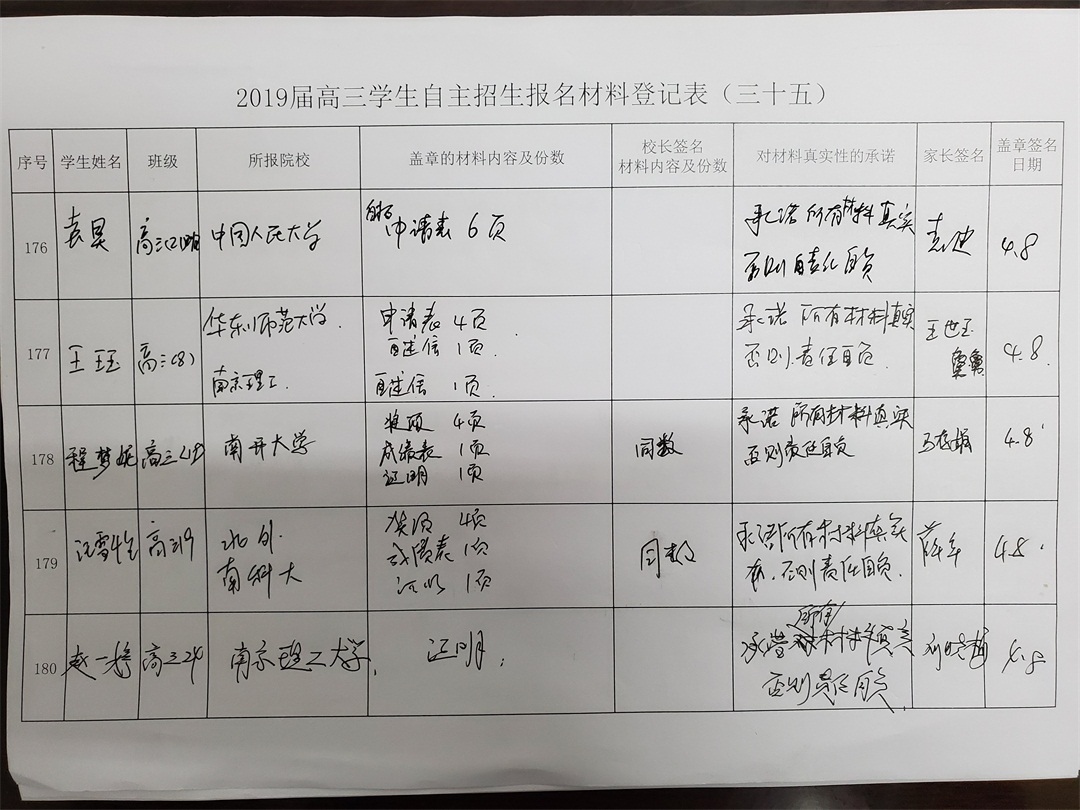 2019届高三学生自主招生报名材料登记表（三十五）
序号 学生姓名 班级 所报院校 盖章的材料内容及份数 校长签名 材料内容及份数 对材料真实性的承诺 家长签名 盖章签名 日期
176 袁昊 高三 中国人民大学 申请表 6页 承诺所有材料真实 否则自负 4.8
177 王珏 高三(8) 华东师范大学 申请表 4页 承诺所有材料真实 4.8
自述信 1页 否则责任自负
南京理工 自述信 1页
178 程梦妮 高三 南开大学 奖项 4页 同数 承诺所有材料真实 4.8
成绩表 1页 否则责任自负
证明 1页
179 高三19 北外 奖项 4页 同数 承诺所有材料真实 4.8
南科大 成绩表 1页 否则责任自负
证明 1页
180 赵一 高三24 南京理工大学 证明 承诺所有材料真实 4.8
否则责任自负